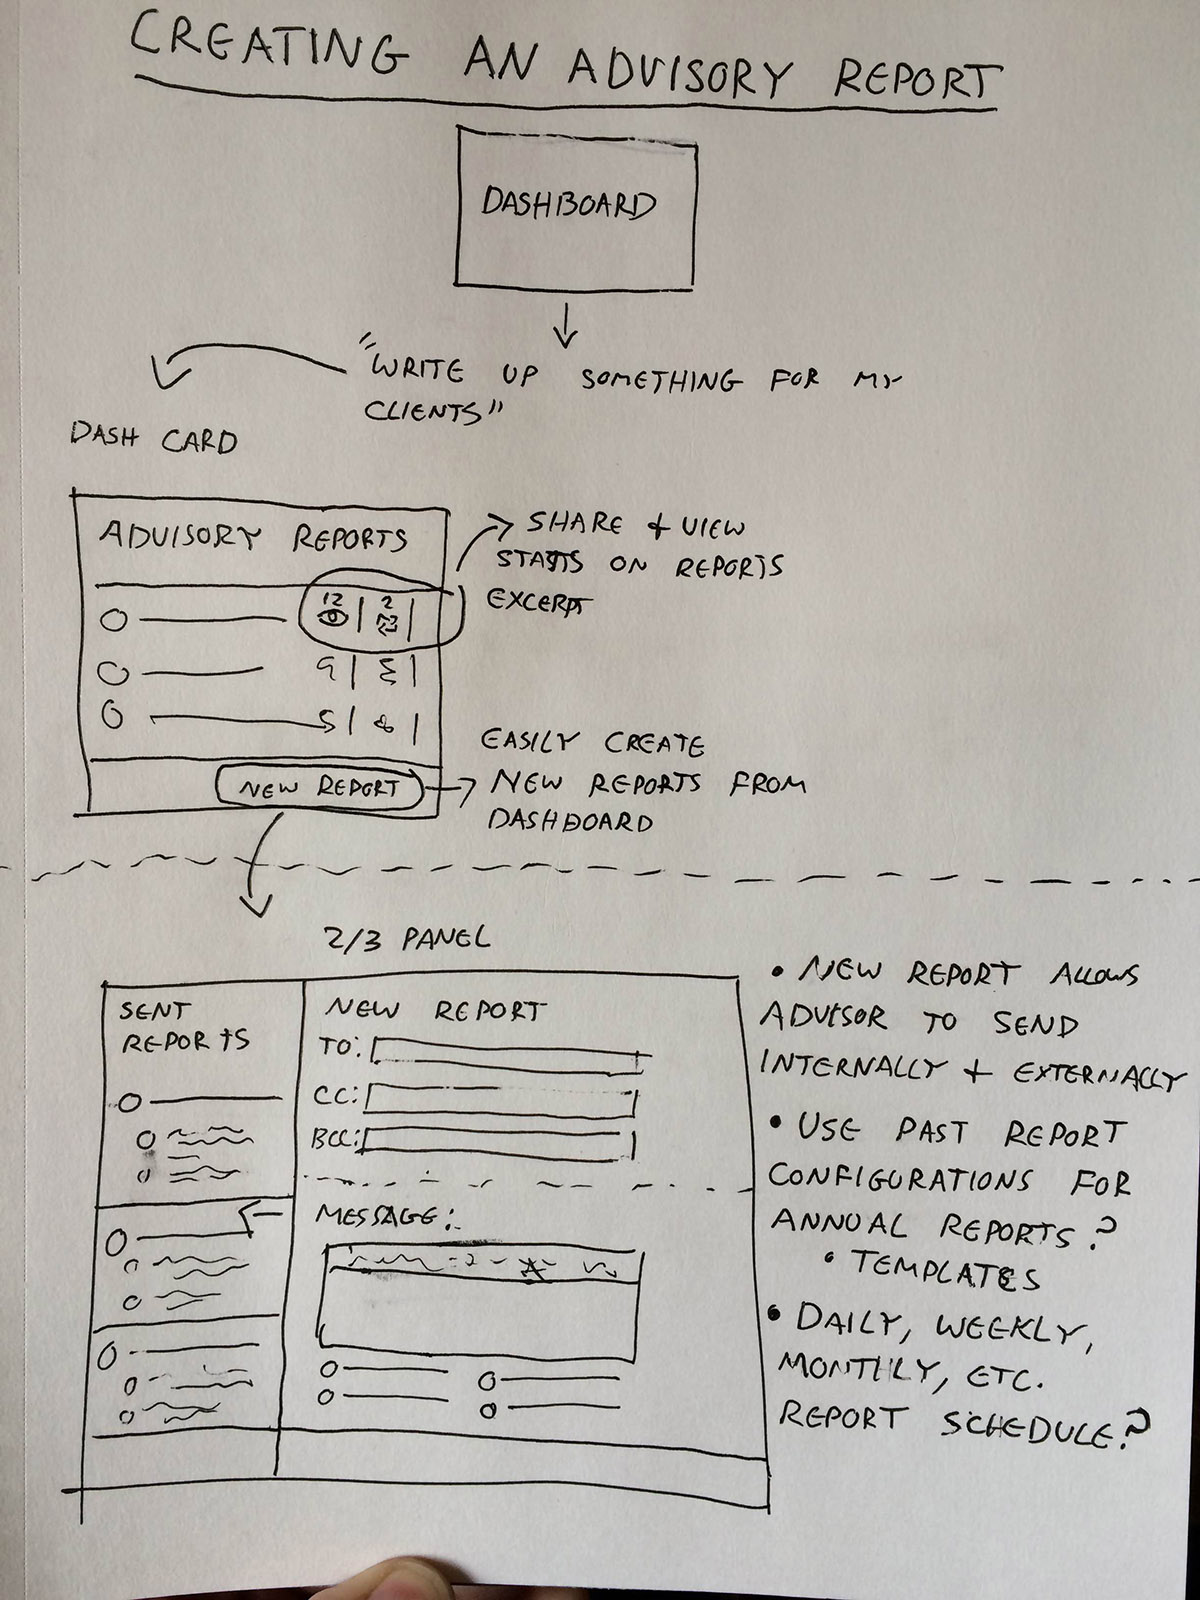 CREATING AN ADVISORY REPORT
DASHBOARD
"WRITE UP SOMETHING FOR MY
CLIENTS"
DASH CARD
ADVISORY REPORTS
12 2
9
5
NEW REPORT
SHARE + VIEW
STATS ON REPORTS
EXCERPT
EASILY CREATE
NEW REPORTS FROM
DASHBOARD
2/3 PANEL
SENT
REPORTS
NEW REPORT
TO:
CC:
BCC:
MESSAGE:
• NEW REPORT ALLOWS
ADVISOR TO SEND
INTERNALLY + EXTERNALLY
• USE PAST REPORT
CONFIGURATIONS FOR
ANNUAL REPORTS?
• TEMPLATES
• DAILY, WEEKLY,
MONTHLY, ETC.
REPORT SCHEDULE?